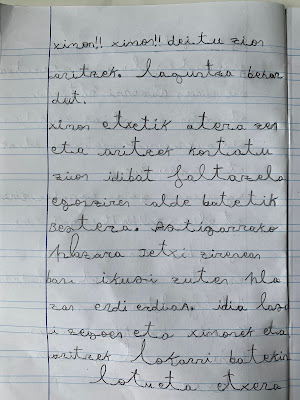 xinor!! xinor!! deitu zion
aritzek. laguntza behar
dut.
xinor etxetik atera zen
eta aritzek kontatu
zion idibat faltazela
egonziren alde batetik
Bestera. Astigarrako
plazara Jetxi zirenean
han ikusi zuten pla
zan erdi erdian. idia laso
i zegoen eta xinorek eta
aritzek lokarri batekin
lotueta etxera